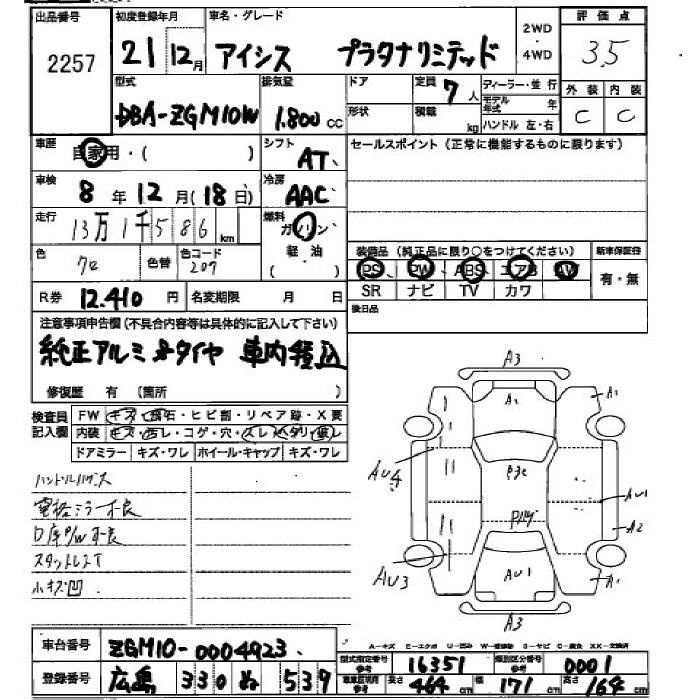 出品番号 初度登録年月 車名・グレード 2WD・4WD 評価点
2257 21 12月 アイシス プラタナリミテッド 3.5
型式 排気量 ドア 定員 7人 ディーラー・並行 外装 内装
DBA-ZGM10W 1.800cc 形状 積載 kg モデル年式 年 ハンドル 左・右 C C
車歴 自家用・( ) シフト AT セールスポイント(正常に機能するものに限ります)
車検 8年12月(18日) 冷房 AAC
走行 13万1千586km 燃料 ガソリン
色 色替 色コード 209 軽油 ( ) 装備品(純正品に限り○をつけてください) 新車保証書
PS PW ABS エアB AW 有・無
R券 12.410円 名変期限 月 日 SR ナビ TV カワ
注意事項申告欄(不具合内容等は具体的に記入して下さい) 後日品
純正アルミ&タイヤ 車内積込
修復歴 有(箇所 )
検査員記入欄 FW キズ・飛石・ヒビ割・リペア跡・X要
内装 キズ・汚レ・コゲ・穴・スレ・ヘタリ・破レ
ドアミラー キズ・ワレ ホイール・キャップ キズ・ワレ
電格ミラー不良
スタットレスT
小キズ凹
A3
A2 A1
AU4
AU1
A2
AU3 AU1 A1
A3
A-キズ E-エクボ U-凹ミ W-補修跡 S-サビ C-腐食 XX-交換済
車台番号 ZGM10-0004923 型式指定番号参考 16351 類別区分番号参考 0001
登録番号 広島 330 ぬ 539 長さ 464cm 幅 171cm 高さ 164cm